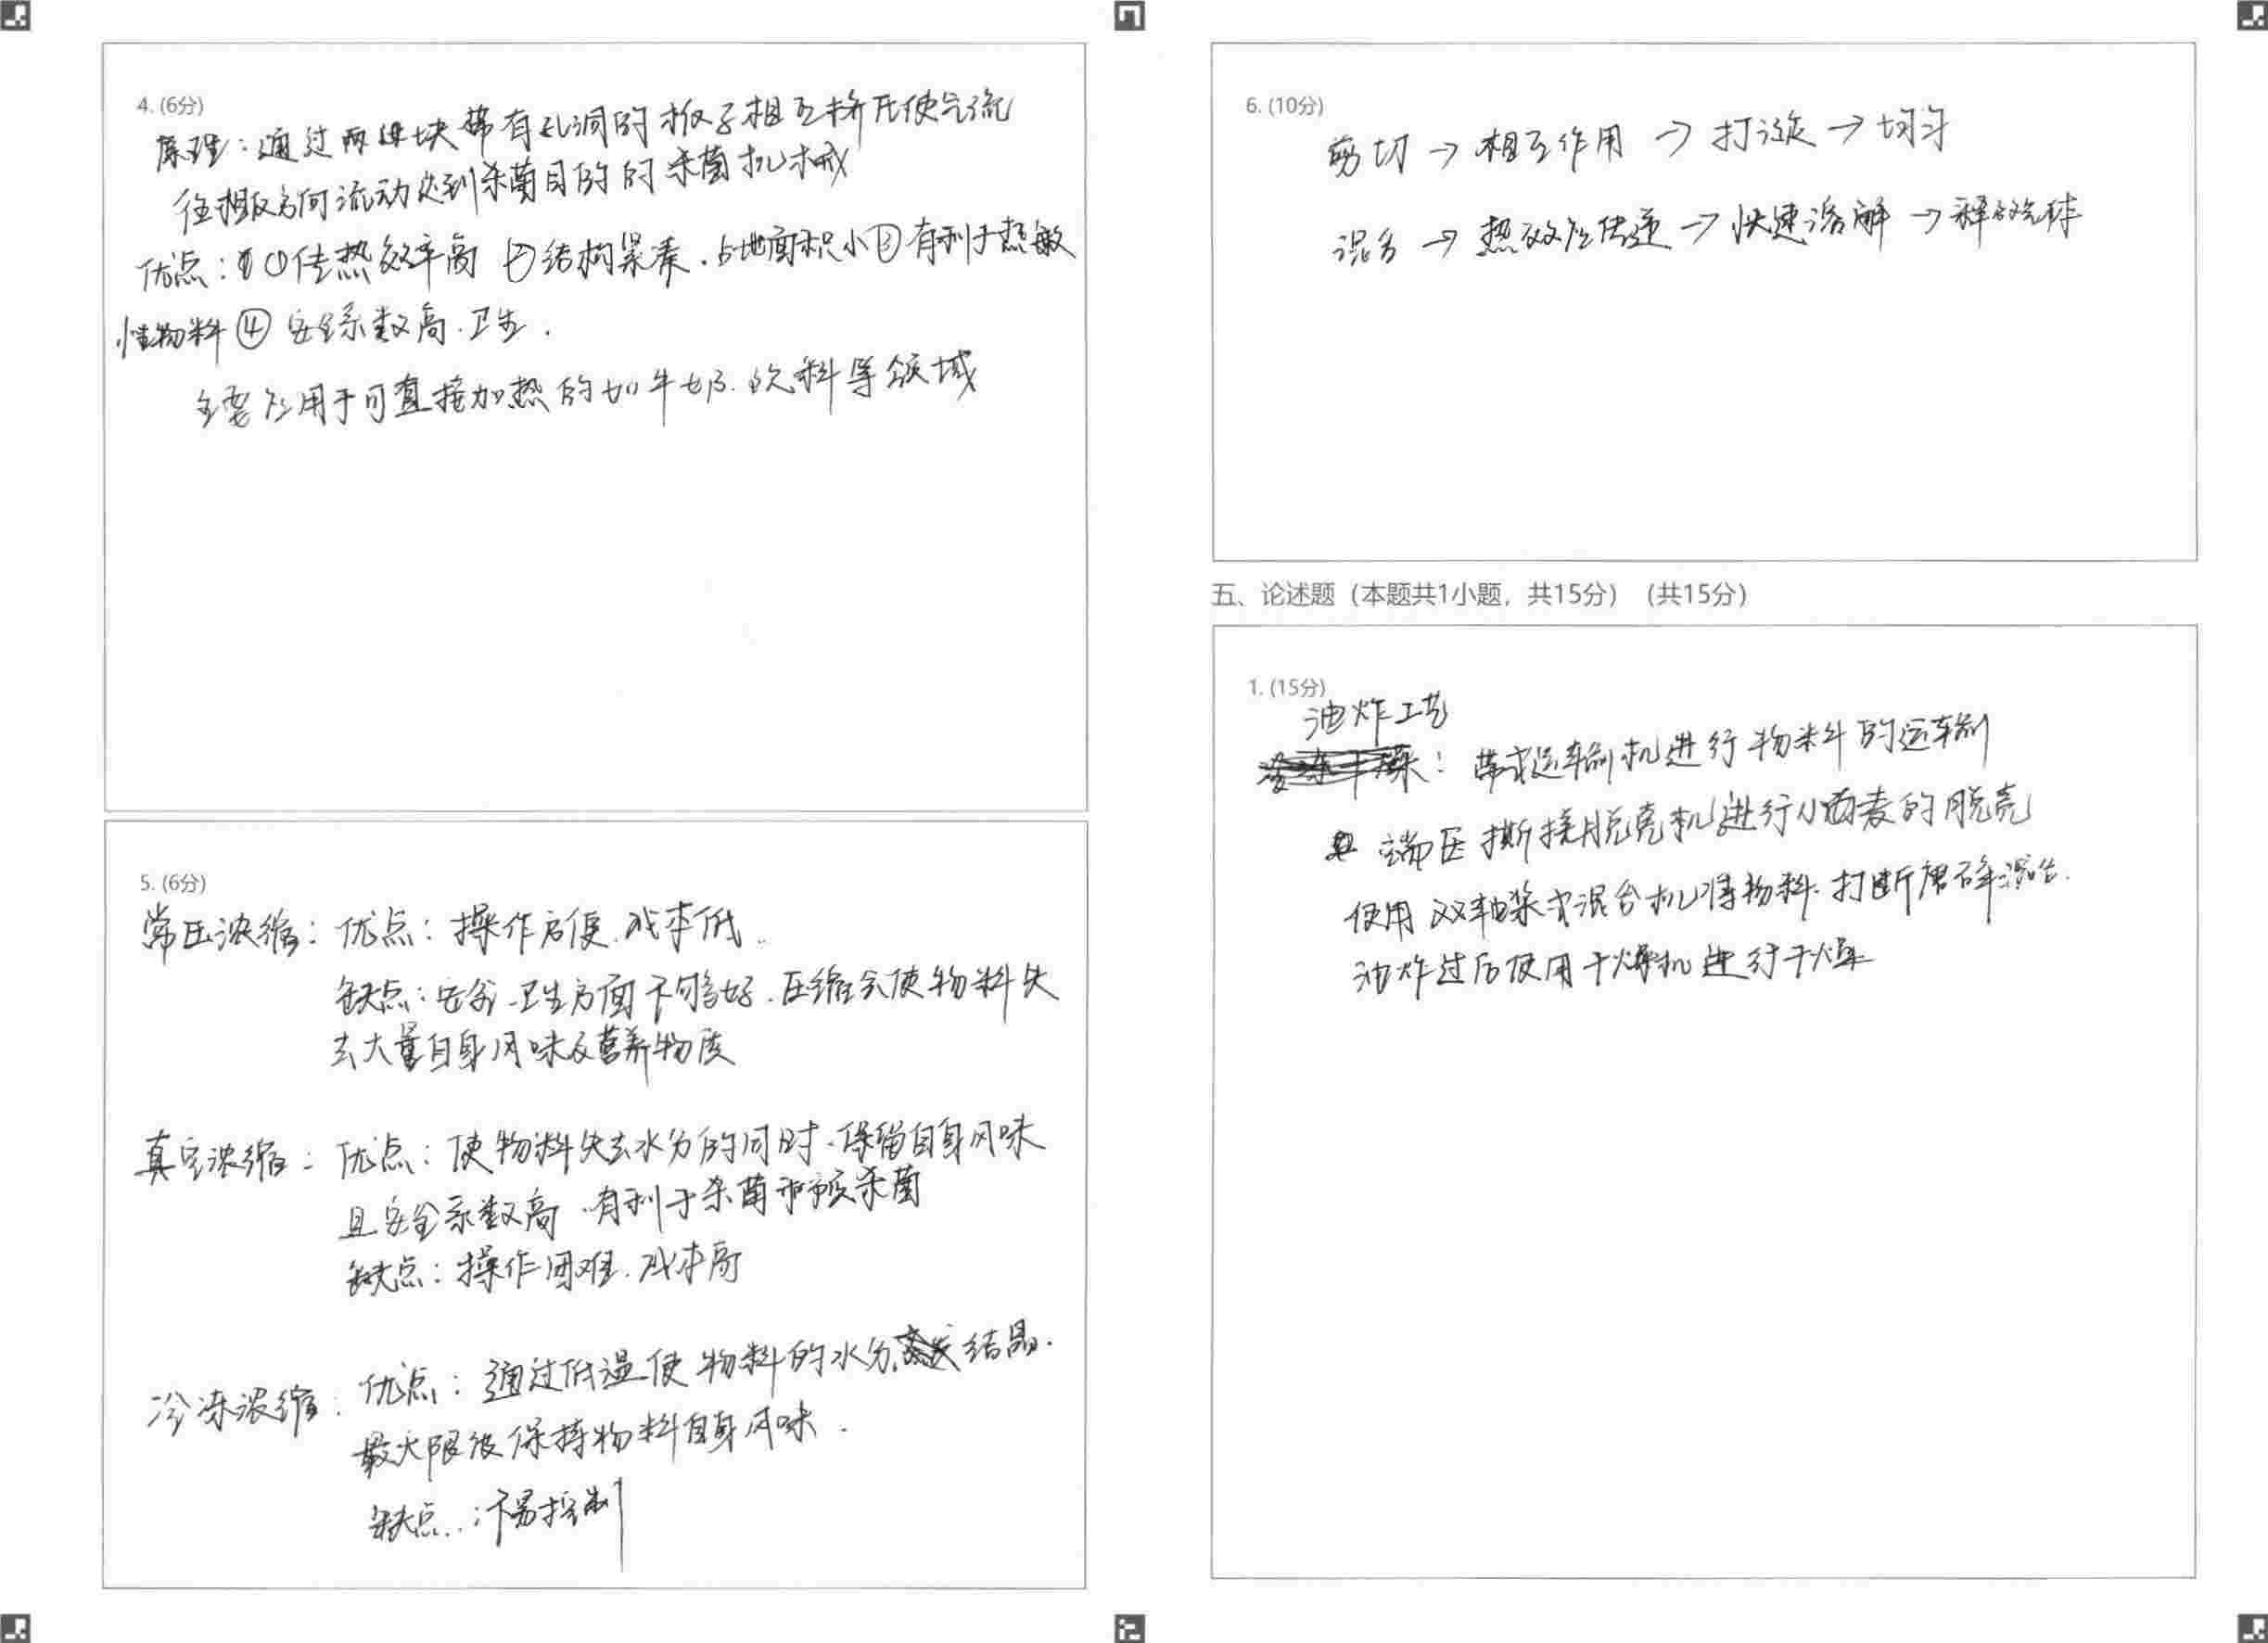 4. (6分)
原理：通过两块带有孔洞的板子相互挤压使气流
往相反方向流动达到杀菌目的的杀菌机械
优点：①传热效率高 ②结构紧凑、占地面积小③有利于热敏
性物料④安全系数高、卫生.
主要应用于可直接加热的如牛奶、饮料等领域
5. (6分)
常压浓缩：优点：操作方便、成本低.
缺点：安全、卫生方面不够好、压缩会使物料失
去大量自身风味及营养物质
真空浓缩：优点：使物料失去水分的同时、保留自身风味
且安全系数高、有利于杀菌和预杀菌
缺点：操作困难、成本高
冷冻浓缩：优点：通过低温使物料的水分结晶.
最大限度保持物料自身风味.
缺点：不易控制
6. (10分)
剪切→相互作用→打淀→切匀
混合→热效应传递→快速溶解→释放
五、论述题（本题共1小题，共15分）（共15分）
1. (15分)
油炸工艺
：带式运输机进行物料的运输
端压撕搓脱壳机进行小西麦的脱壳
使用双轴桨式混合机将物料打断磨碎混合.
油炸过后使用干燥机进行干燥